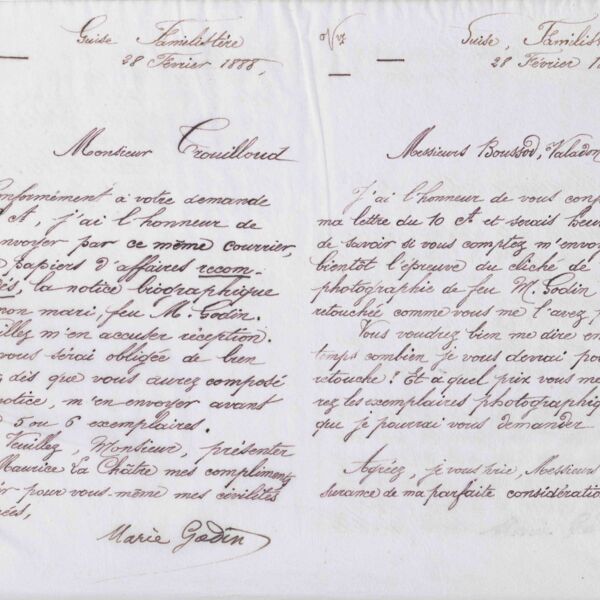 Guise Familistère
28 Février 1888,
Monsieur Trouilloud
Conformément à votre demande
Ct, j'ai l'honneur de
envoyer par ce même courrier,
papiers d'affaires recom-
la notice biographique
mon mari, feu M. Godin.
Veuillez m'en accuser réception.
vous serai obligée de bien
dès que vous aurez composé
notice, m'en envoyer avant
5 ou 6 exemplaires.
Veuillez, Monsieur, présenter
Maurice La Châtre mes compliments
pour vous-même mes civilités
Marie Godin
Guise, Familist
28 Février 1
Messieurs Boussod, Valadon
J'ai l'honneur de vous conf
ma lettre du 10 Ct et serais heur
de savoir si vous comptez m'envoy
bientôt l'épreuve du cliché de
photographie de feu M. Godin
retouchée comme vous me l'avez p
Vous voudrez bien me dire en
temps combien je vous devrai pou
retouche? Et à quel prix vous me
rez les exemplaires photographiq
que je pourrai vous demander
Agréez, je vous prie, Messieurs
surance de ma parfaite considératio